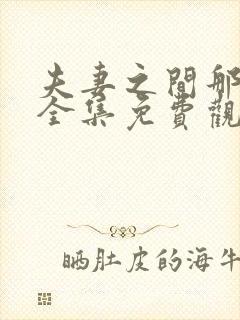 夫妻之間那
全集免費觀
晒肚皮的海牛